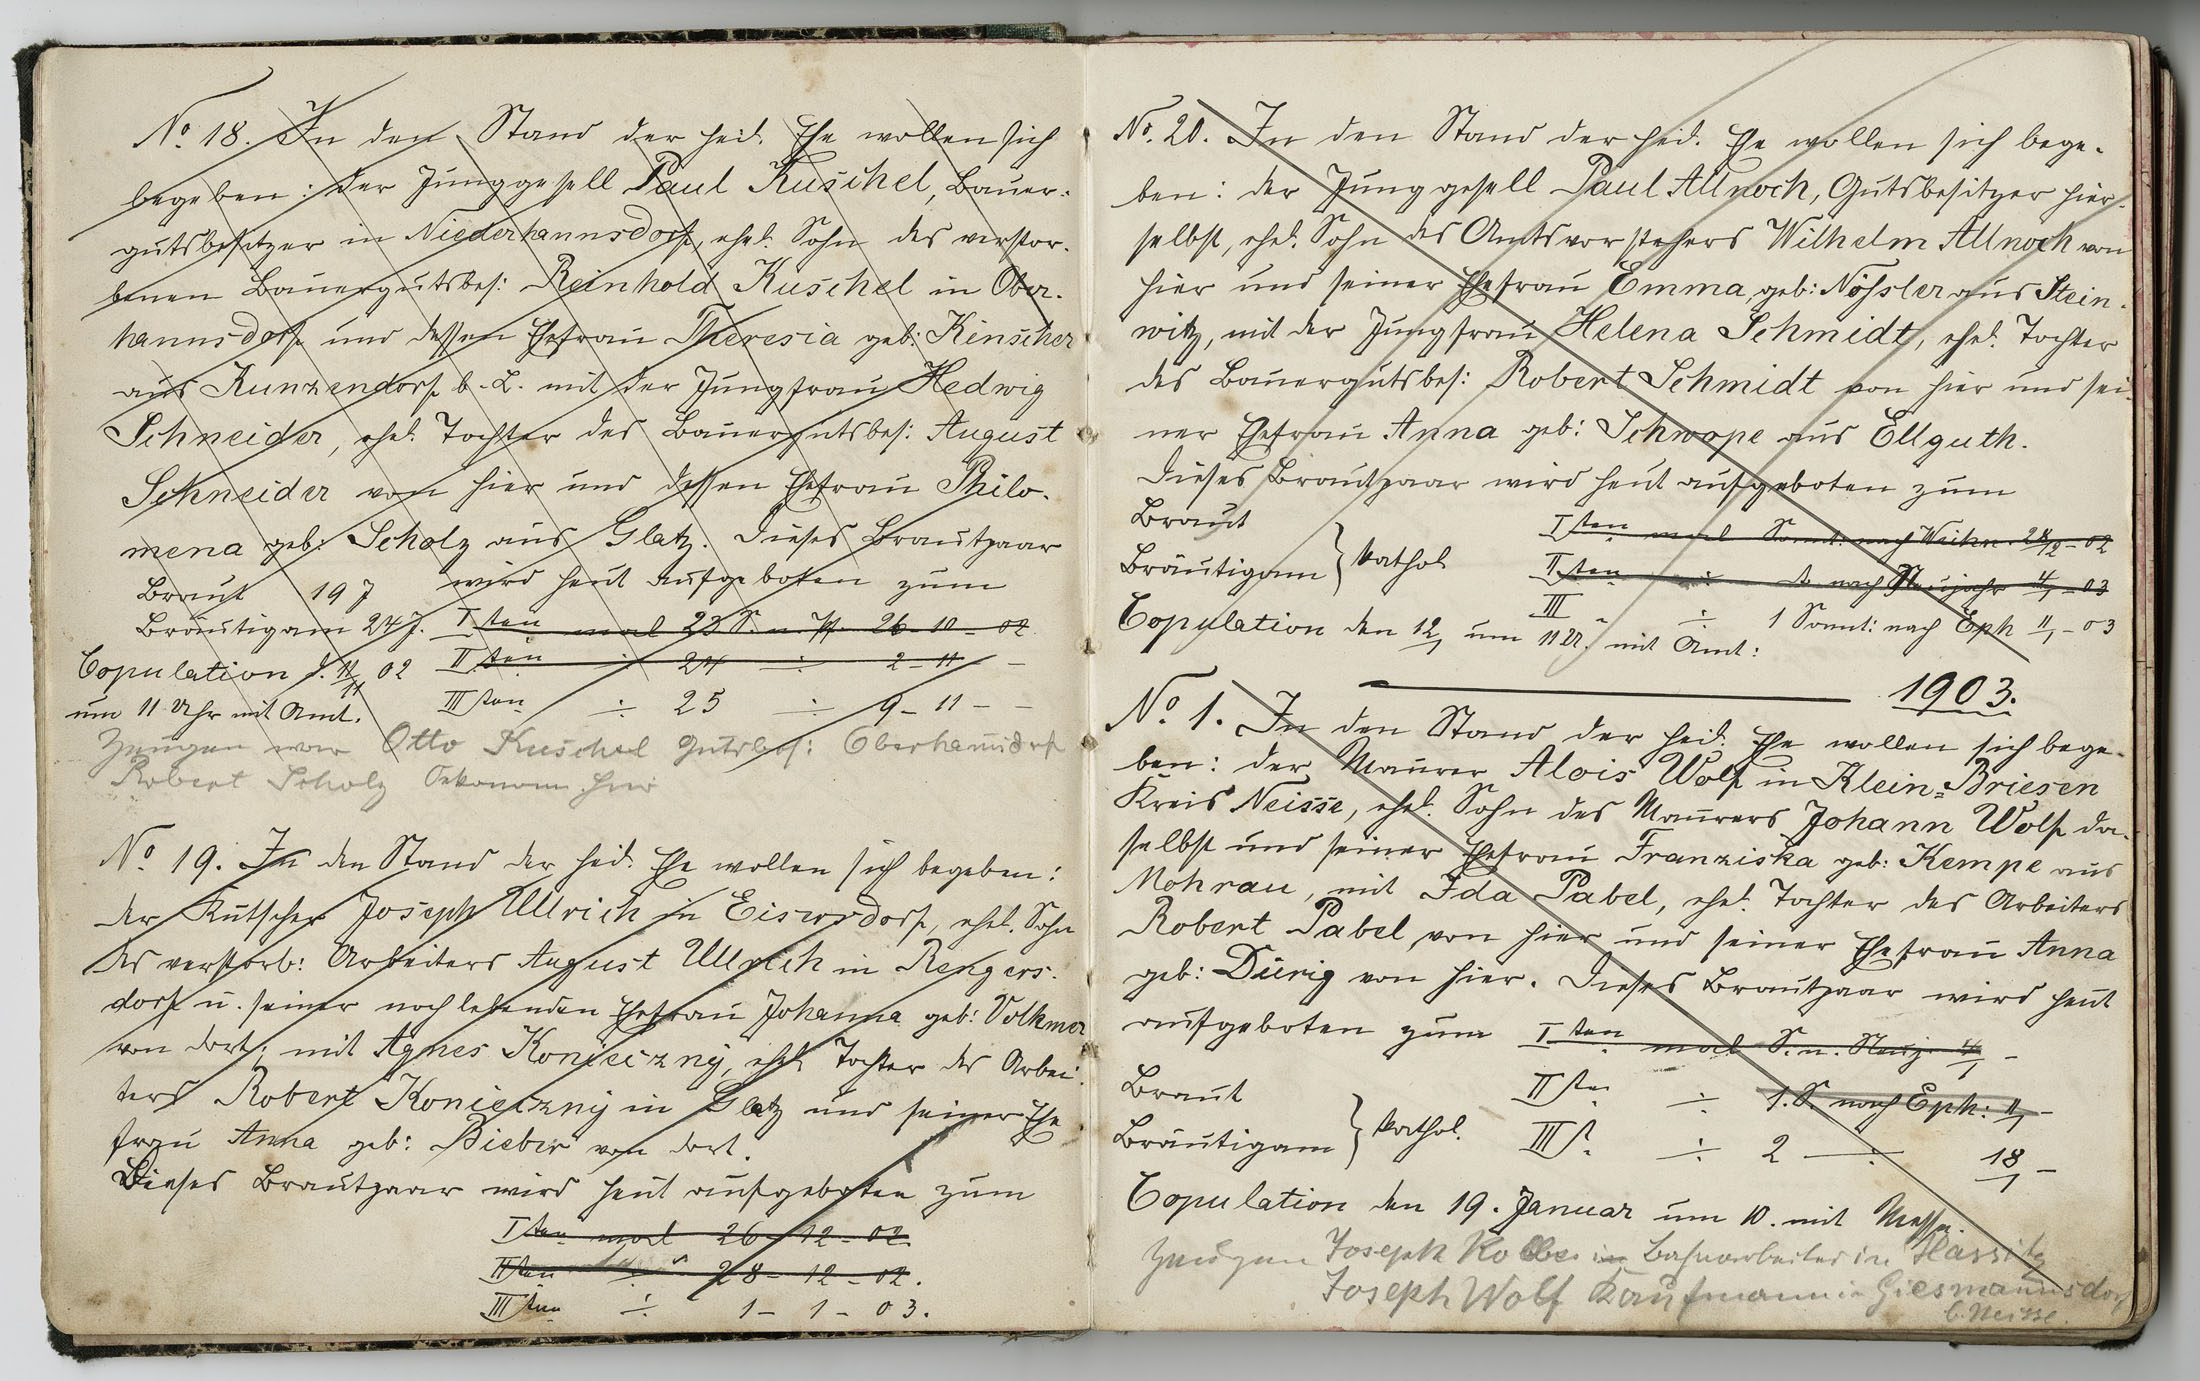 No 18. In den Stand der heil. Ehe wollen sich
begeben: der Junggesell Paul Kuschel, Bauer-
gutsbesitzer in Niederhannsdorf, ehel. Sohn des verstor-
benen Bauergutsbes: Reinhold Kuschel in Ober-
hannsdorf und dessen Ehefrau Theresia geb: Kinscher
aus Kunzendorf b. L. mit der Jungfrau Hedwig
Schneider, ehel. Tochter des Bauergutsbes: August
Schneider von hier und dessen Ehefrau Philo-
mena geb: Scholz aus Glatz. Dieses Brautpaar
wird heut aufgeboten zum
Braut 19 J
Bräutigam 24 J. I ten mal 23 S. n. Pf. 26-10-02
Copulation d. 11/11 02 II ten ÷ 24 ÷ 2-11 -
um 11 Uhr mit Amt. III ten ÷ 25 ÷ 9-11 - -
Zeugen war Otto Kuschel Gutsbes: Oberhannsdorf
Robert Scholz Oekonom hier
No 19. In den Stand der heil. Ehe wollen sich begeben:
der Kutscher Joseph Ullrich in Eisersdorf, ehel. Sohn
des verstorb: Arbeiters August Ullrich in Rengers-
dorf u. seiner noch lebenden Ehefrau Johanna geb: Volkmer
von dort; mit Agnes Konieczny, ehel. Tochter des Arbei-
ters Robert Konieczny in Glatz und seiner Ehe
frau Anna geb: Bieber von dort.
Dieses Brautpaar wird heut aufgeboten zum
I ten mal 26-12-02.
II ten ÷ 28-12-02.
III ten ÷ 1-1-03.
No. 20. In den Stand der heil. Ehe wollen sich bege-
ben: der Junggesell Paul Allnoch, Gutsbesitzer hier-
selbst, ehel. Sohn des Amtsvorstehers Wilhelm Allnoch von
hier und seiner Ehefrau Emma, geb: Nößler aus Stein-
witz, mit der Jungfrau Helena Schmidt, ehel. Tochter
des Bauergutsbes: Robert Schmidt von hier und sei-
ner Ehefrau Anna geb: Schwope aus Ellguth.
Dieses Brautpaar wird heut aufgeboten zum
Braut
Bräutigam } kathol.
I ten mal Sonnt: nach Weihn. 28/12-02
II ten ÷ d. nach Neujahr 4/1-03
III ÷ 1 Sonnt: nach Eph 11/1-03
Copulation den 12/1 um 11 U. mit Amt:
1903.
No 1. In den Stand der heil. Ehe wollen sich bege-
ben: der Maurer Alois Wolf in Klein-Briesen
Kreis Neisse, ehel. Sohn des Maurers Johann Wolf da-
selbst und seiner Ehefrau Franziska geb: Kempe aus
Mohrau, mit Ida Pabel, ehel. Tochter des Arbeiters
Robert Pabel von hier und seiner Ehefrau Anna
geb: Dürig von hier. Dieses Brautpaar wird heut
aufgeboten zum I ten mal S. n. Neuj. 4/1 -
Braut
Bräutigam } kathol.
II ten ÷ 1. S. nach Eph: 11/1 -
III t. ÷ 2 ÷ 18/1 -
Copulation den 19. Januar um 10. mit Messe.
Zeugen Joseph Kolbe in Bahnarbeiter in Hassitz
Joseph Wolf Kaufmann in Giesmannsdorf
b. Neisse.